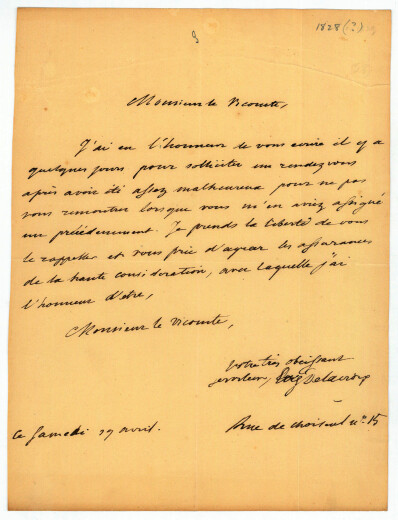 1828 (?)
Monsieur le Vicomte,
J'ai eu l'honneur de vous écrire il y a
quelques jours pour solliciter un rendez vous
après avoir été assez malheureux pour ne pas
vous rencontrer lorsque vous m'en aviez assigné
un précédemment. Je prends la liberté de vous
le rappeller et vous prie d'agréer les assurances
de la haute considération, avec laquelle j'ai
l'honneur d'être,
Monsieur le Vicomte,
Votre très obéissant
serviteur, Eug Delacroix
Ce Samedi 19 avril.
Rue de Choiseul n.º 15